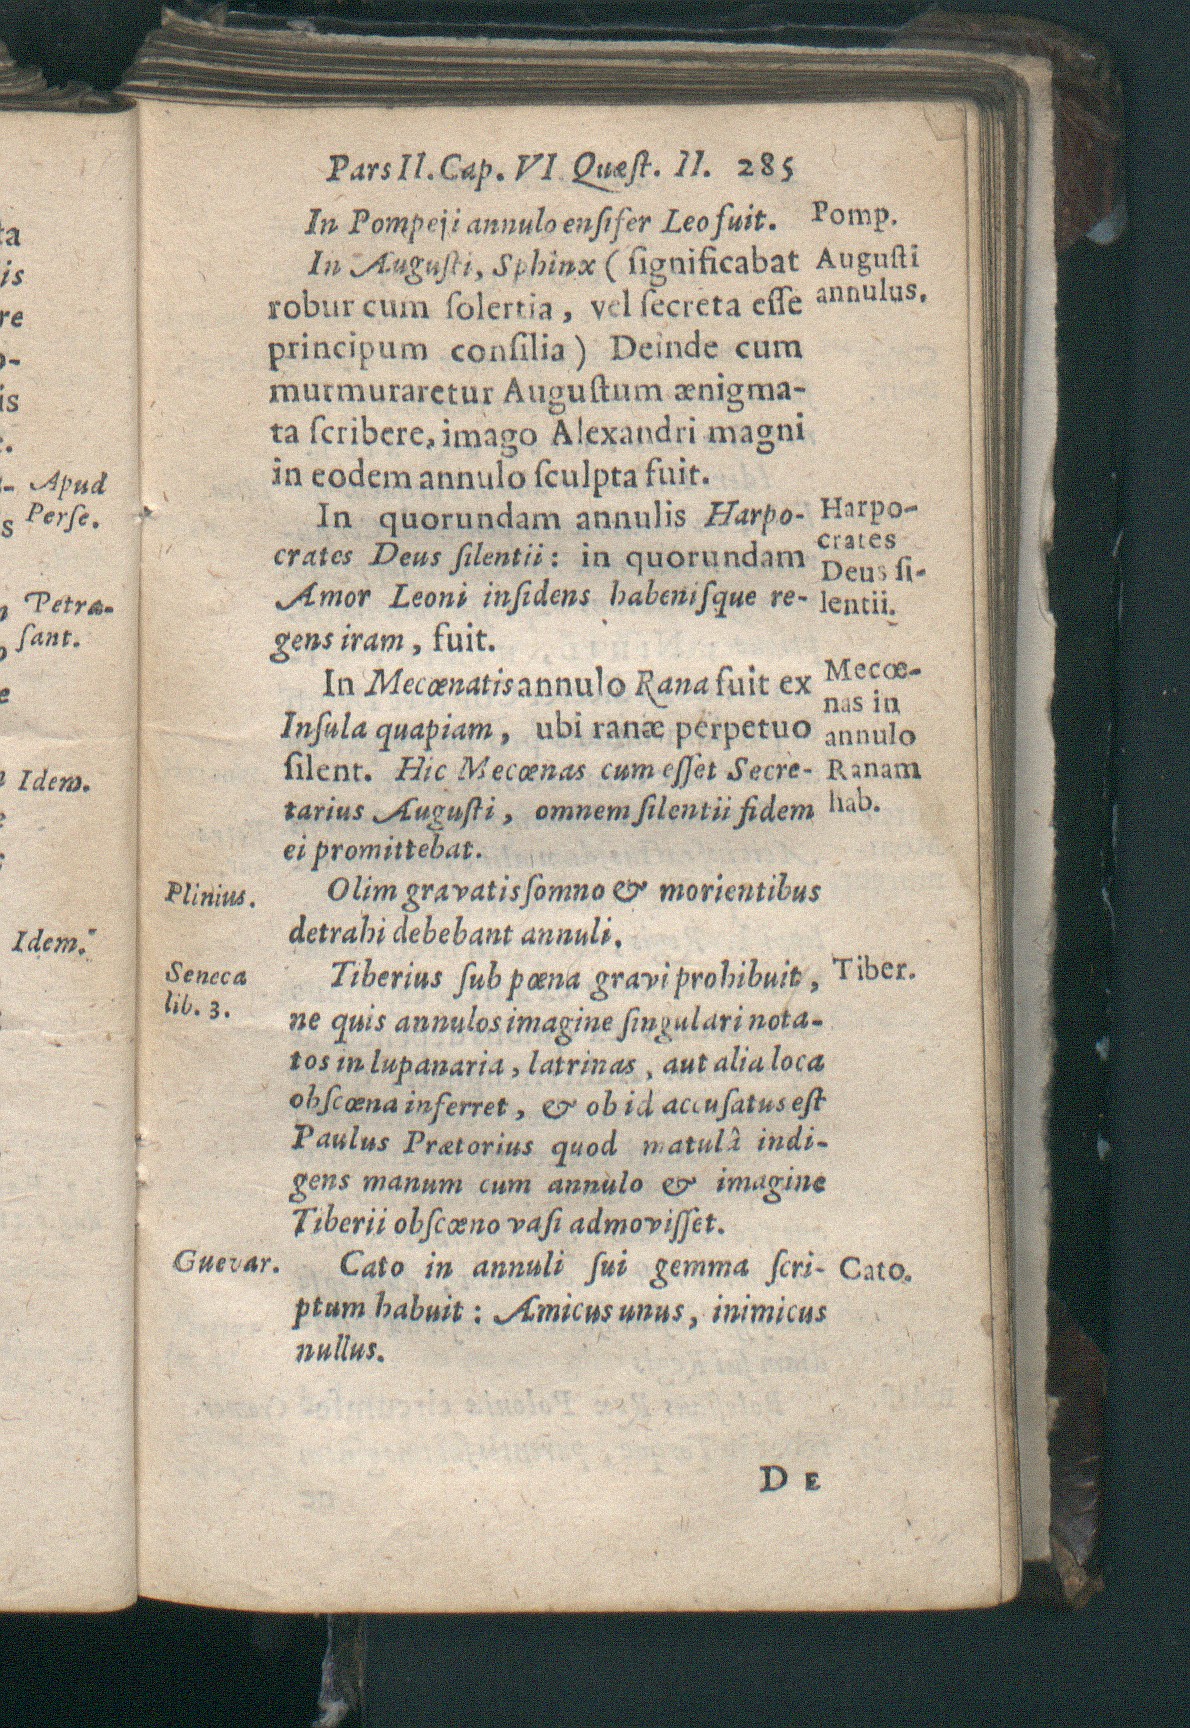 ta
is
re
o-
is
Apud
s Perse.
Petræ-
sant.
e
Idem.
Idem.
Pars II. Cap. VI Quæſt. II. 285
In Pompeji annulo enſifer Leo fuit.
Pomp.
In Auguſti, Sphinx (ſignificabat
robur cum ſolertia, vel ſecreta eſſe
principum conſilia) Deinde cum
murmuraretur Auguſtum ænigma-
ta ſcribere, imago Alexandri magni
in eodem annulo ſculpta fuit.
Auguſti
annulus.
In quorundam annulis Harpo-
crates Deus ſilentii: in quorundam
Amor Leoni inſidens habeniſque re-
gens iram, fuit.
Harpo-
crates
Deus ſi-
lentii.
In Mecœnatis annulo Rana fuit ex
Inſula quapiam, ubi ranæ perpetuo
ſilent. Hic Mecœnas cum eſſet Secre-
tarius Auguſti, omnem ſilentii fidem
ei promittebat.
Mecœ-
nas in
annulo
Ranam
hab.
Plinius.
Olim gravatis ſomno & morientibus
detrahi debebant annuli.
Seneca
lib. 3.
Tiberius ſub pœna gravi prohibuit,
ne quis annulos imagine ſingulari nota-
tos in lupanaria, latrinas, aut alia loca
obſcœna inferret, & ob id accuſatus eſt
Paulus Prætorius quod matulâ indi-
gens manum cum annulo & imagine
Tiberii obſcœno vaſi admoviſſet.
Tiber.
Guevar.
Cato in annuli ſui gemma ſcri-
ptum habuit: Amicus unus, inimicus
nullus.
Cato.
DE